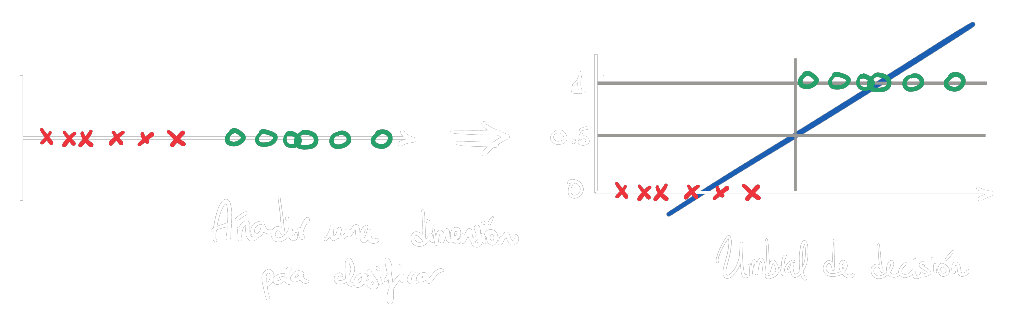 1
0.5
0
Añadir una dimensión
para clasificar
Umbral de decisión